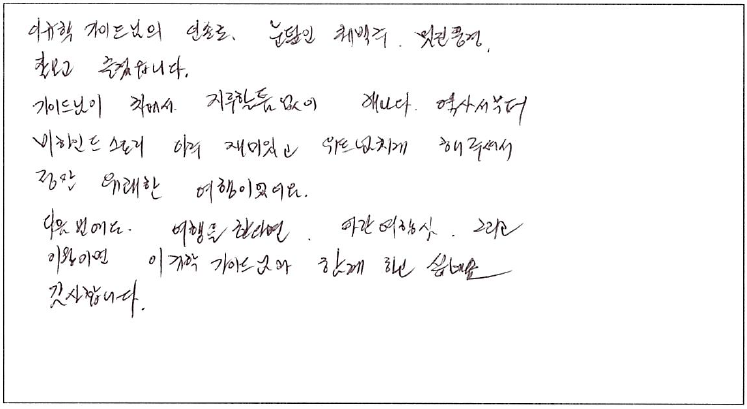 이규학 가이드님의 인솔로. 눈덮인 체박주. 멋진풍경,
잘보고 즐겼습니다.
가이드님이 차에서 지루할틈 없이 캐나다. 역사서부터
비하인드 스토리 아주 재미있고 위트넘치게 해주셔서
정말 유쾌한 여행이었어요.
다음번에도. 여행을 한다면. 파란여행사. 그리고
이왕이면 이규학 가이드님과 함께 하고 싶네요
감사합니다.